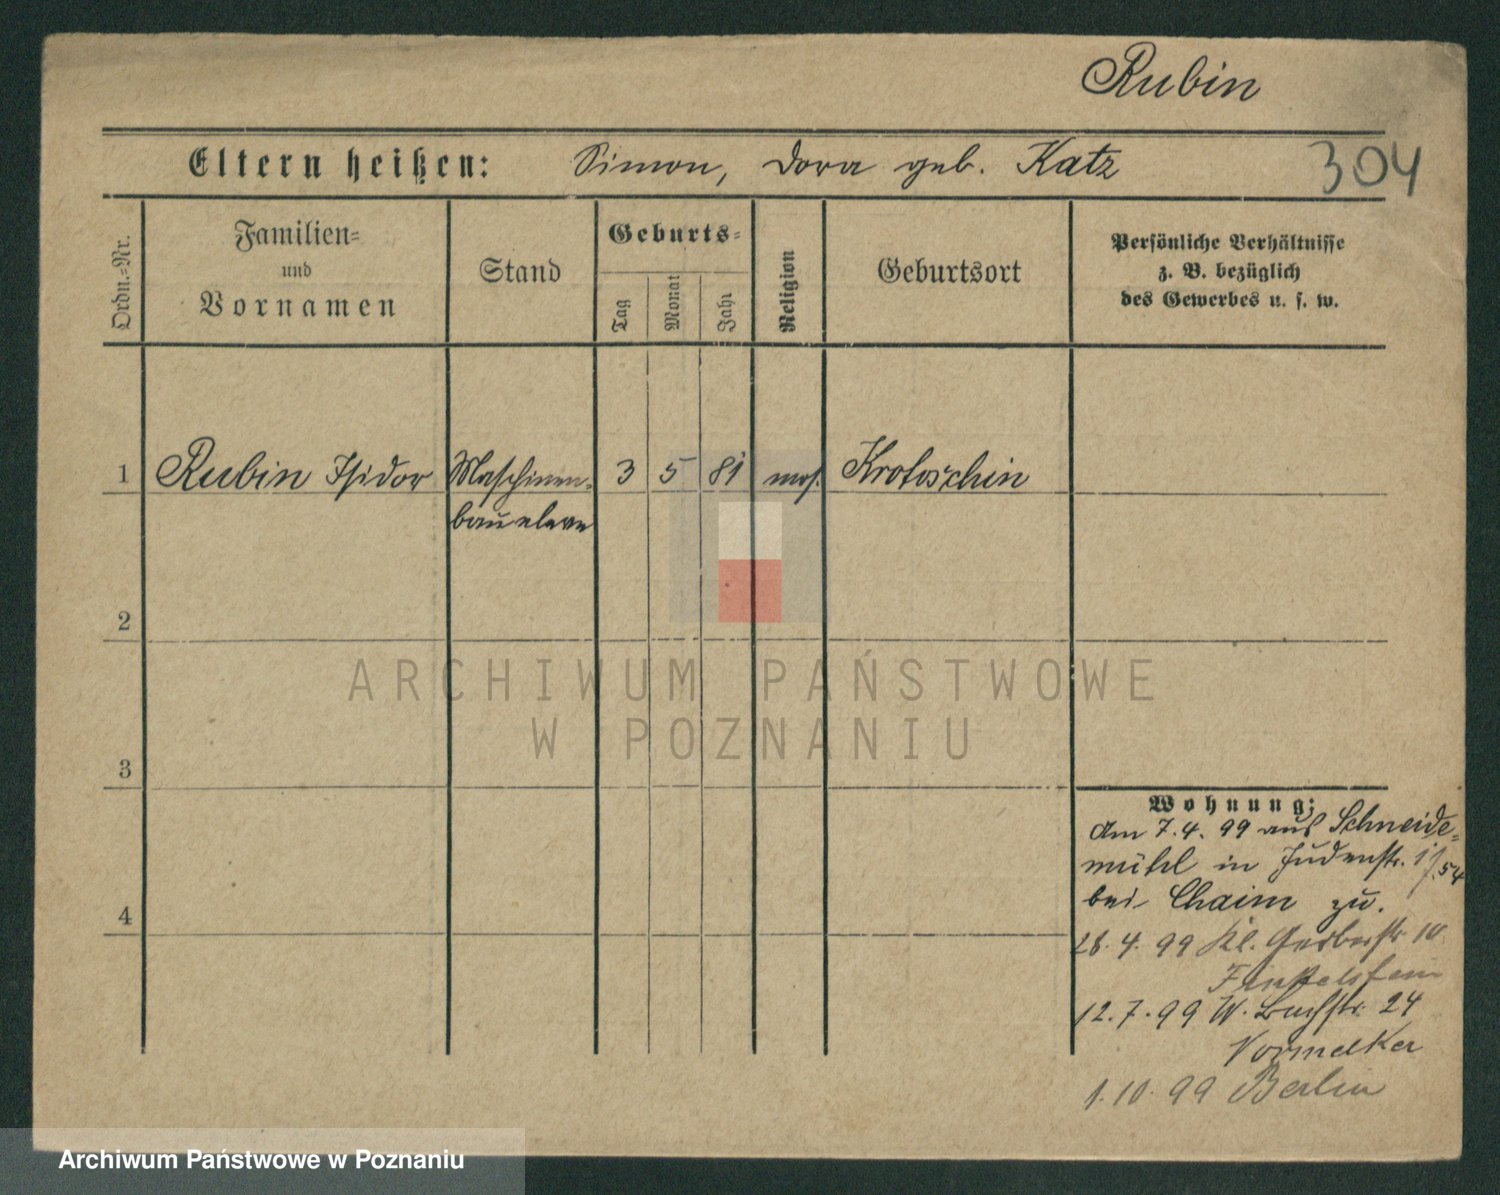 Rubin
304
Eltern heißen: Simon, Dora geb. Katz
Ordn.=Nr.
Familien=
und
Vornamen
Stand
Geburts=
Tag
Monat
Jahr
Religion
Geburtsort
Persönliche Verhältnisse
z. B. bezüglich
des Gewerbes u. s. w.
1 Rubin Isidor Maschinen- 3 5 81 mos. Krotoschin
baueleve
2
ARCHIWUM PAŃSTWOWE
W POZNANIU
3
Wohnung:
Am 7.4.99 aus Schneide=
mühl in Judenstr.
bei Chaim zu.
28.4.99 Kl. Gerberstr. 10
Finkelstein
4
12.7.99 W. Buchstr. 24
1.10.99 Berlin
Archiwum Państwowe w Poznaniu